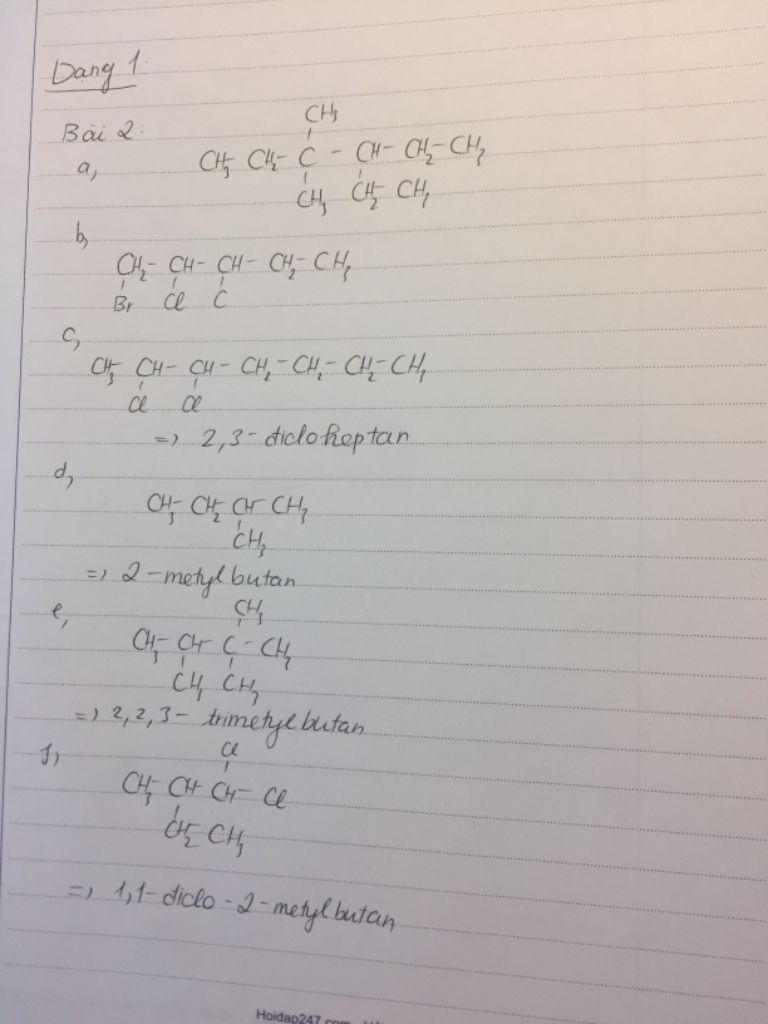 Dạng 1:
Bài 2:
a,
CH3
CH3 - CH2 - C - CH - CH2 - CH3
CH3 CH2 - CH3
b,
CH2 - CH - CH - CH2 - CH3
Br Cl C
c,
CH3 - CH - CH - CH2 - CH2 - CH2 - CH3
Cl Cl
=> 2,3 - diclo heptan
d,
CH3 - CH2 - CH - CH3
CH3
=> 2 - metyl butan
e,
CH3
CH3 - CH - C - CH3
CH3 CH3
=> 2,2,3 - trimetyl butan
f,
Cl
CH3 - CH - CH - Cl
CH2 - CH3
=> 1,1 - diclo - 2 - metyl butan
Hoidap247.com